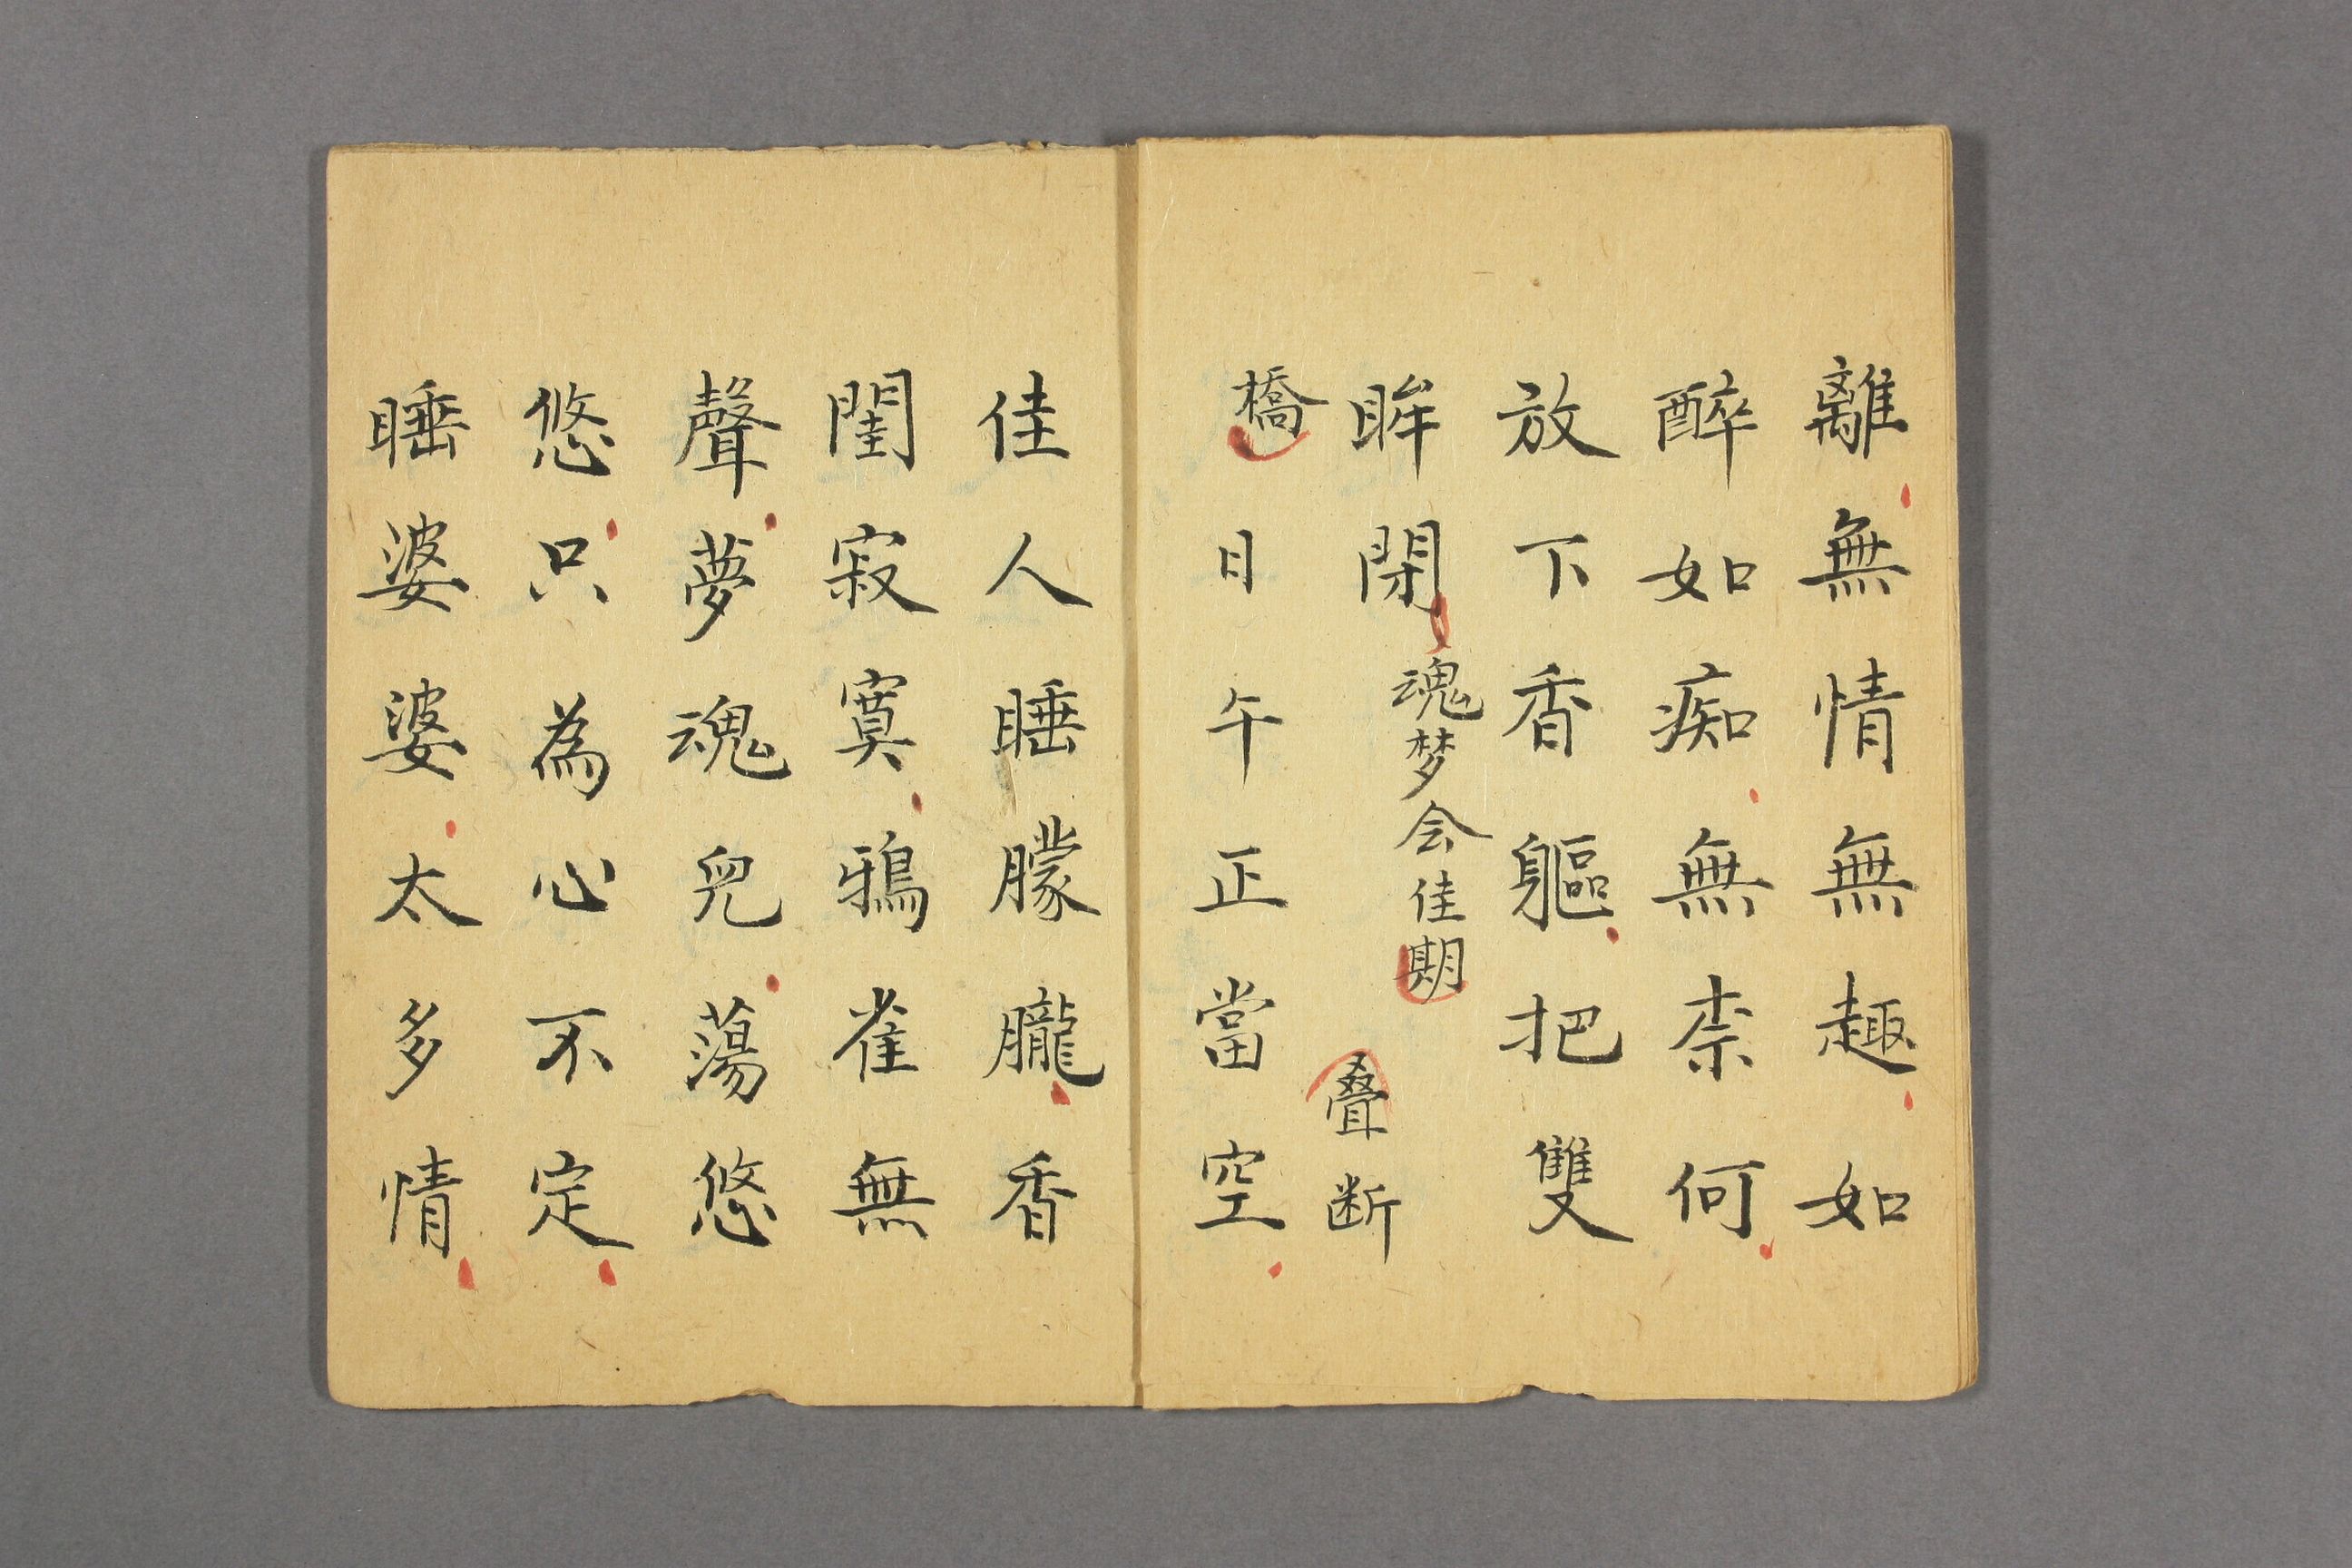 離無情無趣如
醉如痴無柰何
放下香軀把雙
眸閉魂梦会佳期叠断
橋日午正當空
佳人睡朦朧香
閨寂寞鴉雀無
聲夢魂兒蕩悠
悠只為心不定
睡婆婆太多情